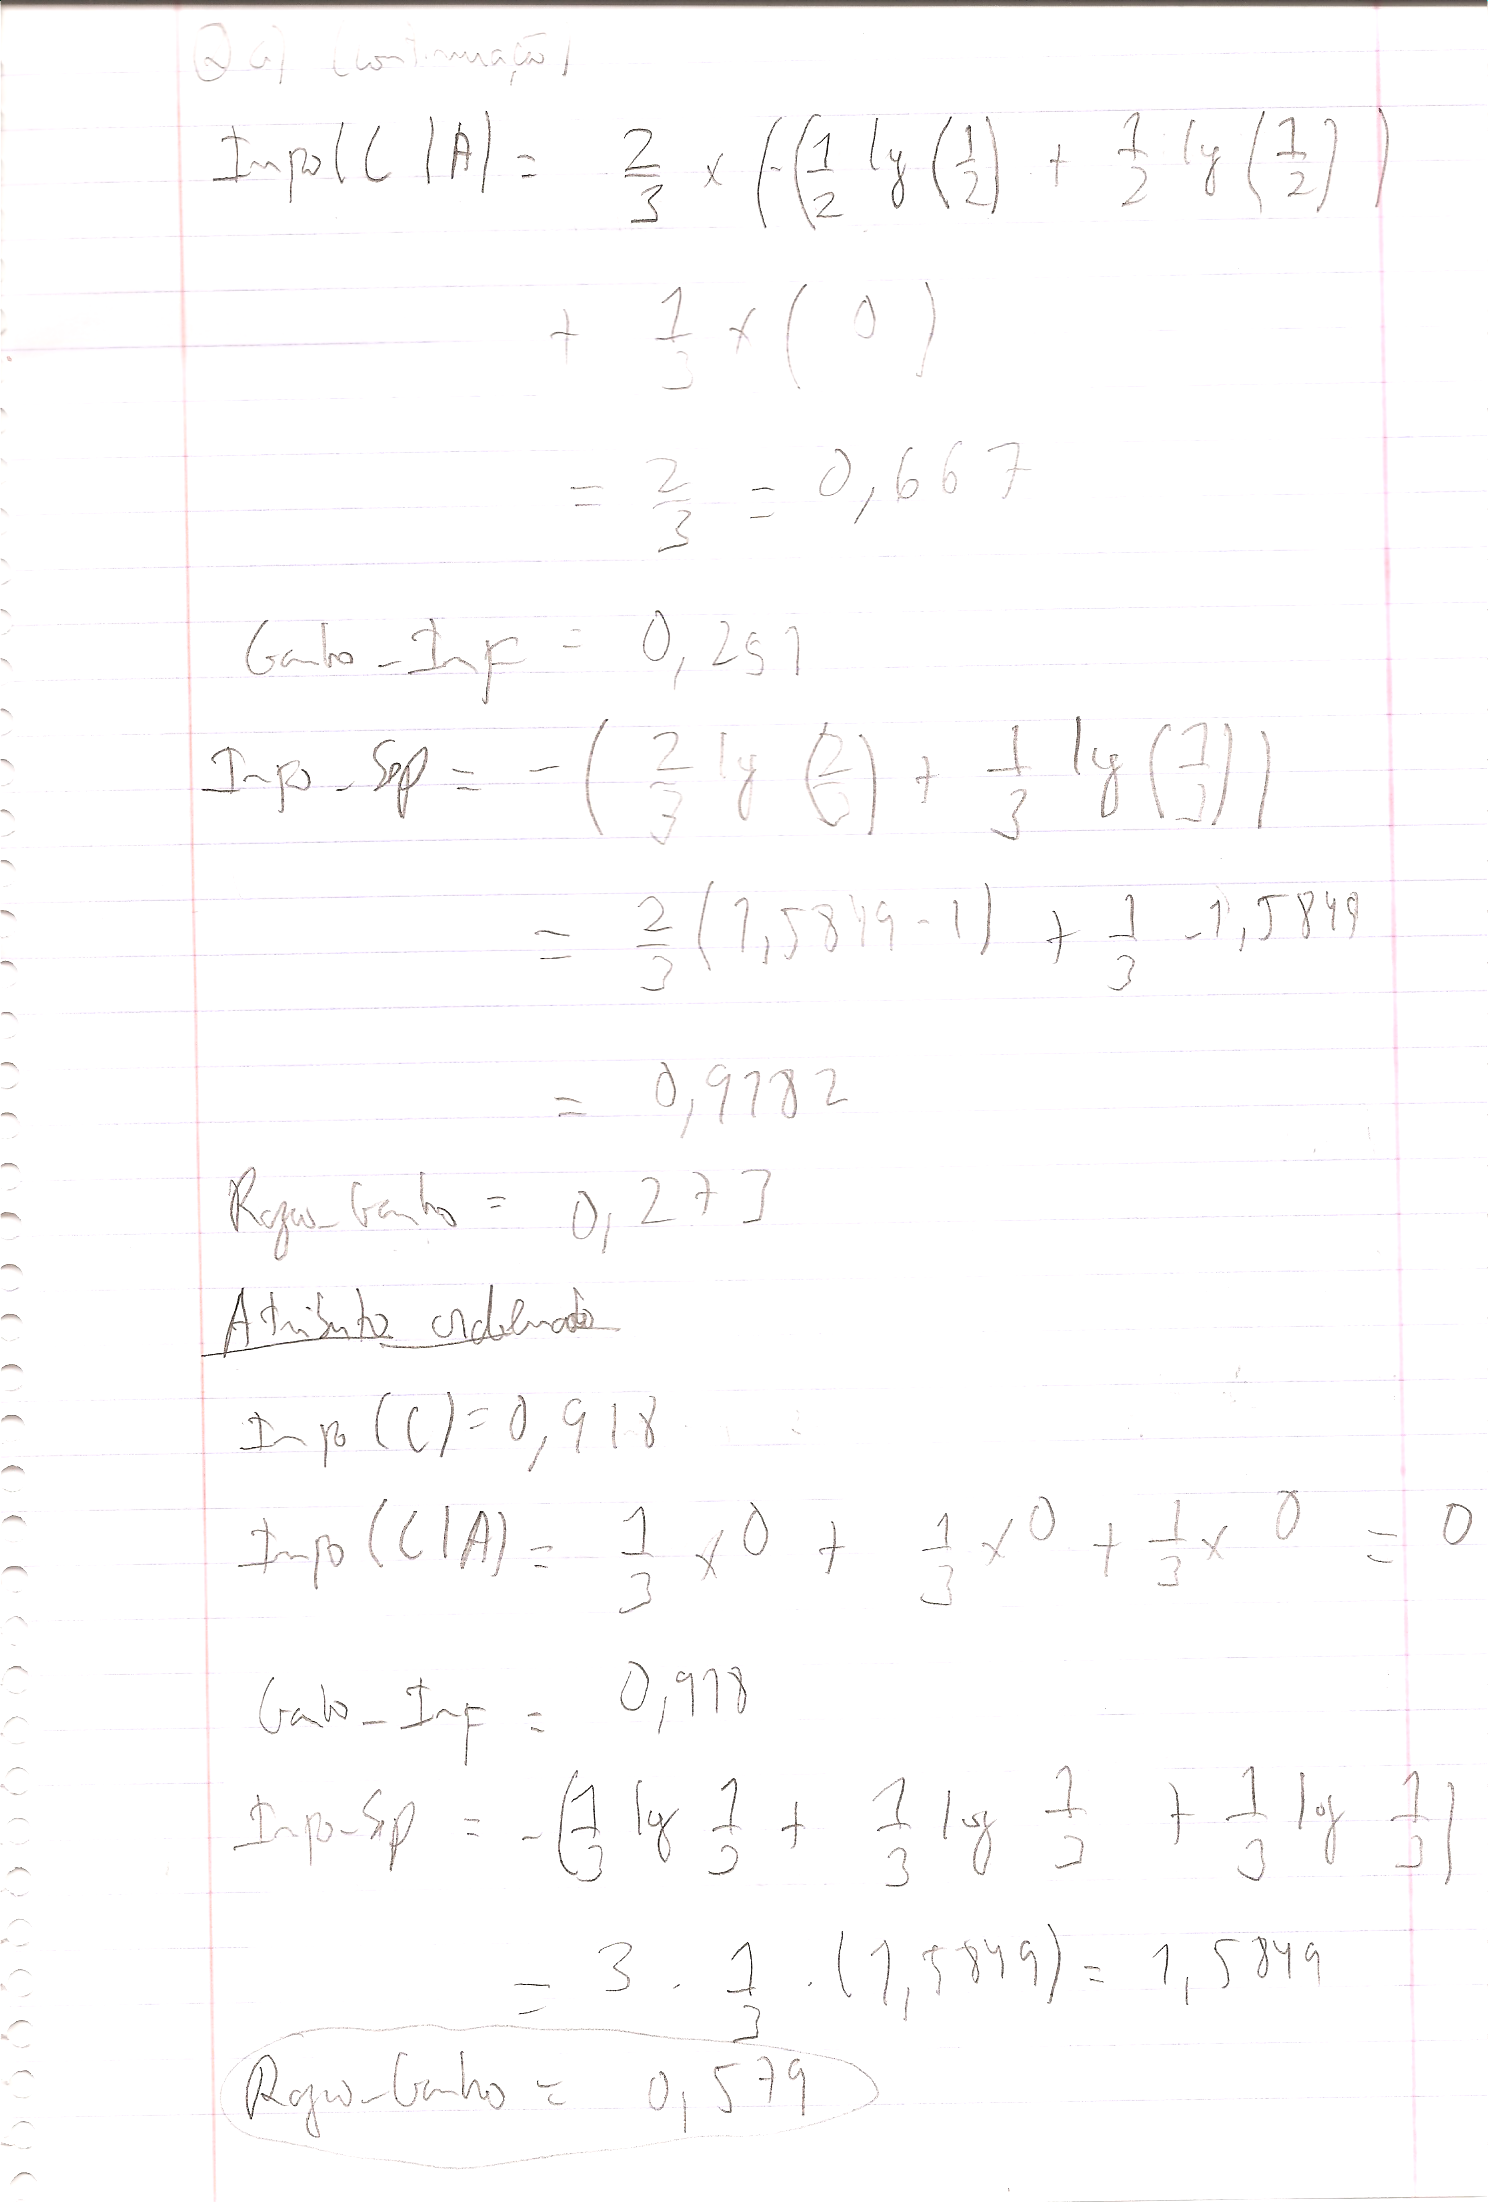 2 a) (continuação)
Info(C|A) = 2/3 x (-(1/2 lg(1/2) + 1/2 lg(1/2))
+ 1/3 x (0)
= 2/3 = 0,667
Ganho_Inf = 0,251
Info_Sep = -(2/3 lg(2/3) + 1/3 lg(1/3))
= 2/3 (1,5849-1) + 1/3 .1,5849
= 0,9182
Razao_Ganho = 0,273
Atributo ordenado
Info(C) = 0,918
Info(C|A) = 1/3 x 0 + 1/3 x 0 + 1/3 x 0 = 0
Ganho_Inf = 0,918
Info_Sep = -(1/3 lg 1/3 + 1/3 log 1/3 + 1/3 lg 1/3)
= 3 . 1/3 . (1,5849) = 1,5849
Razao_Ganho = 0,579